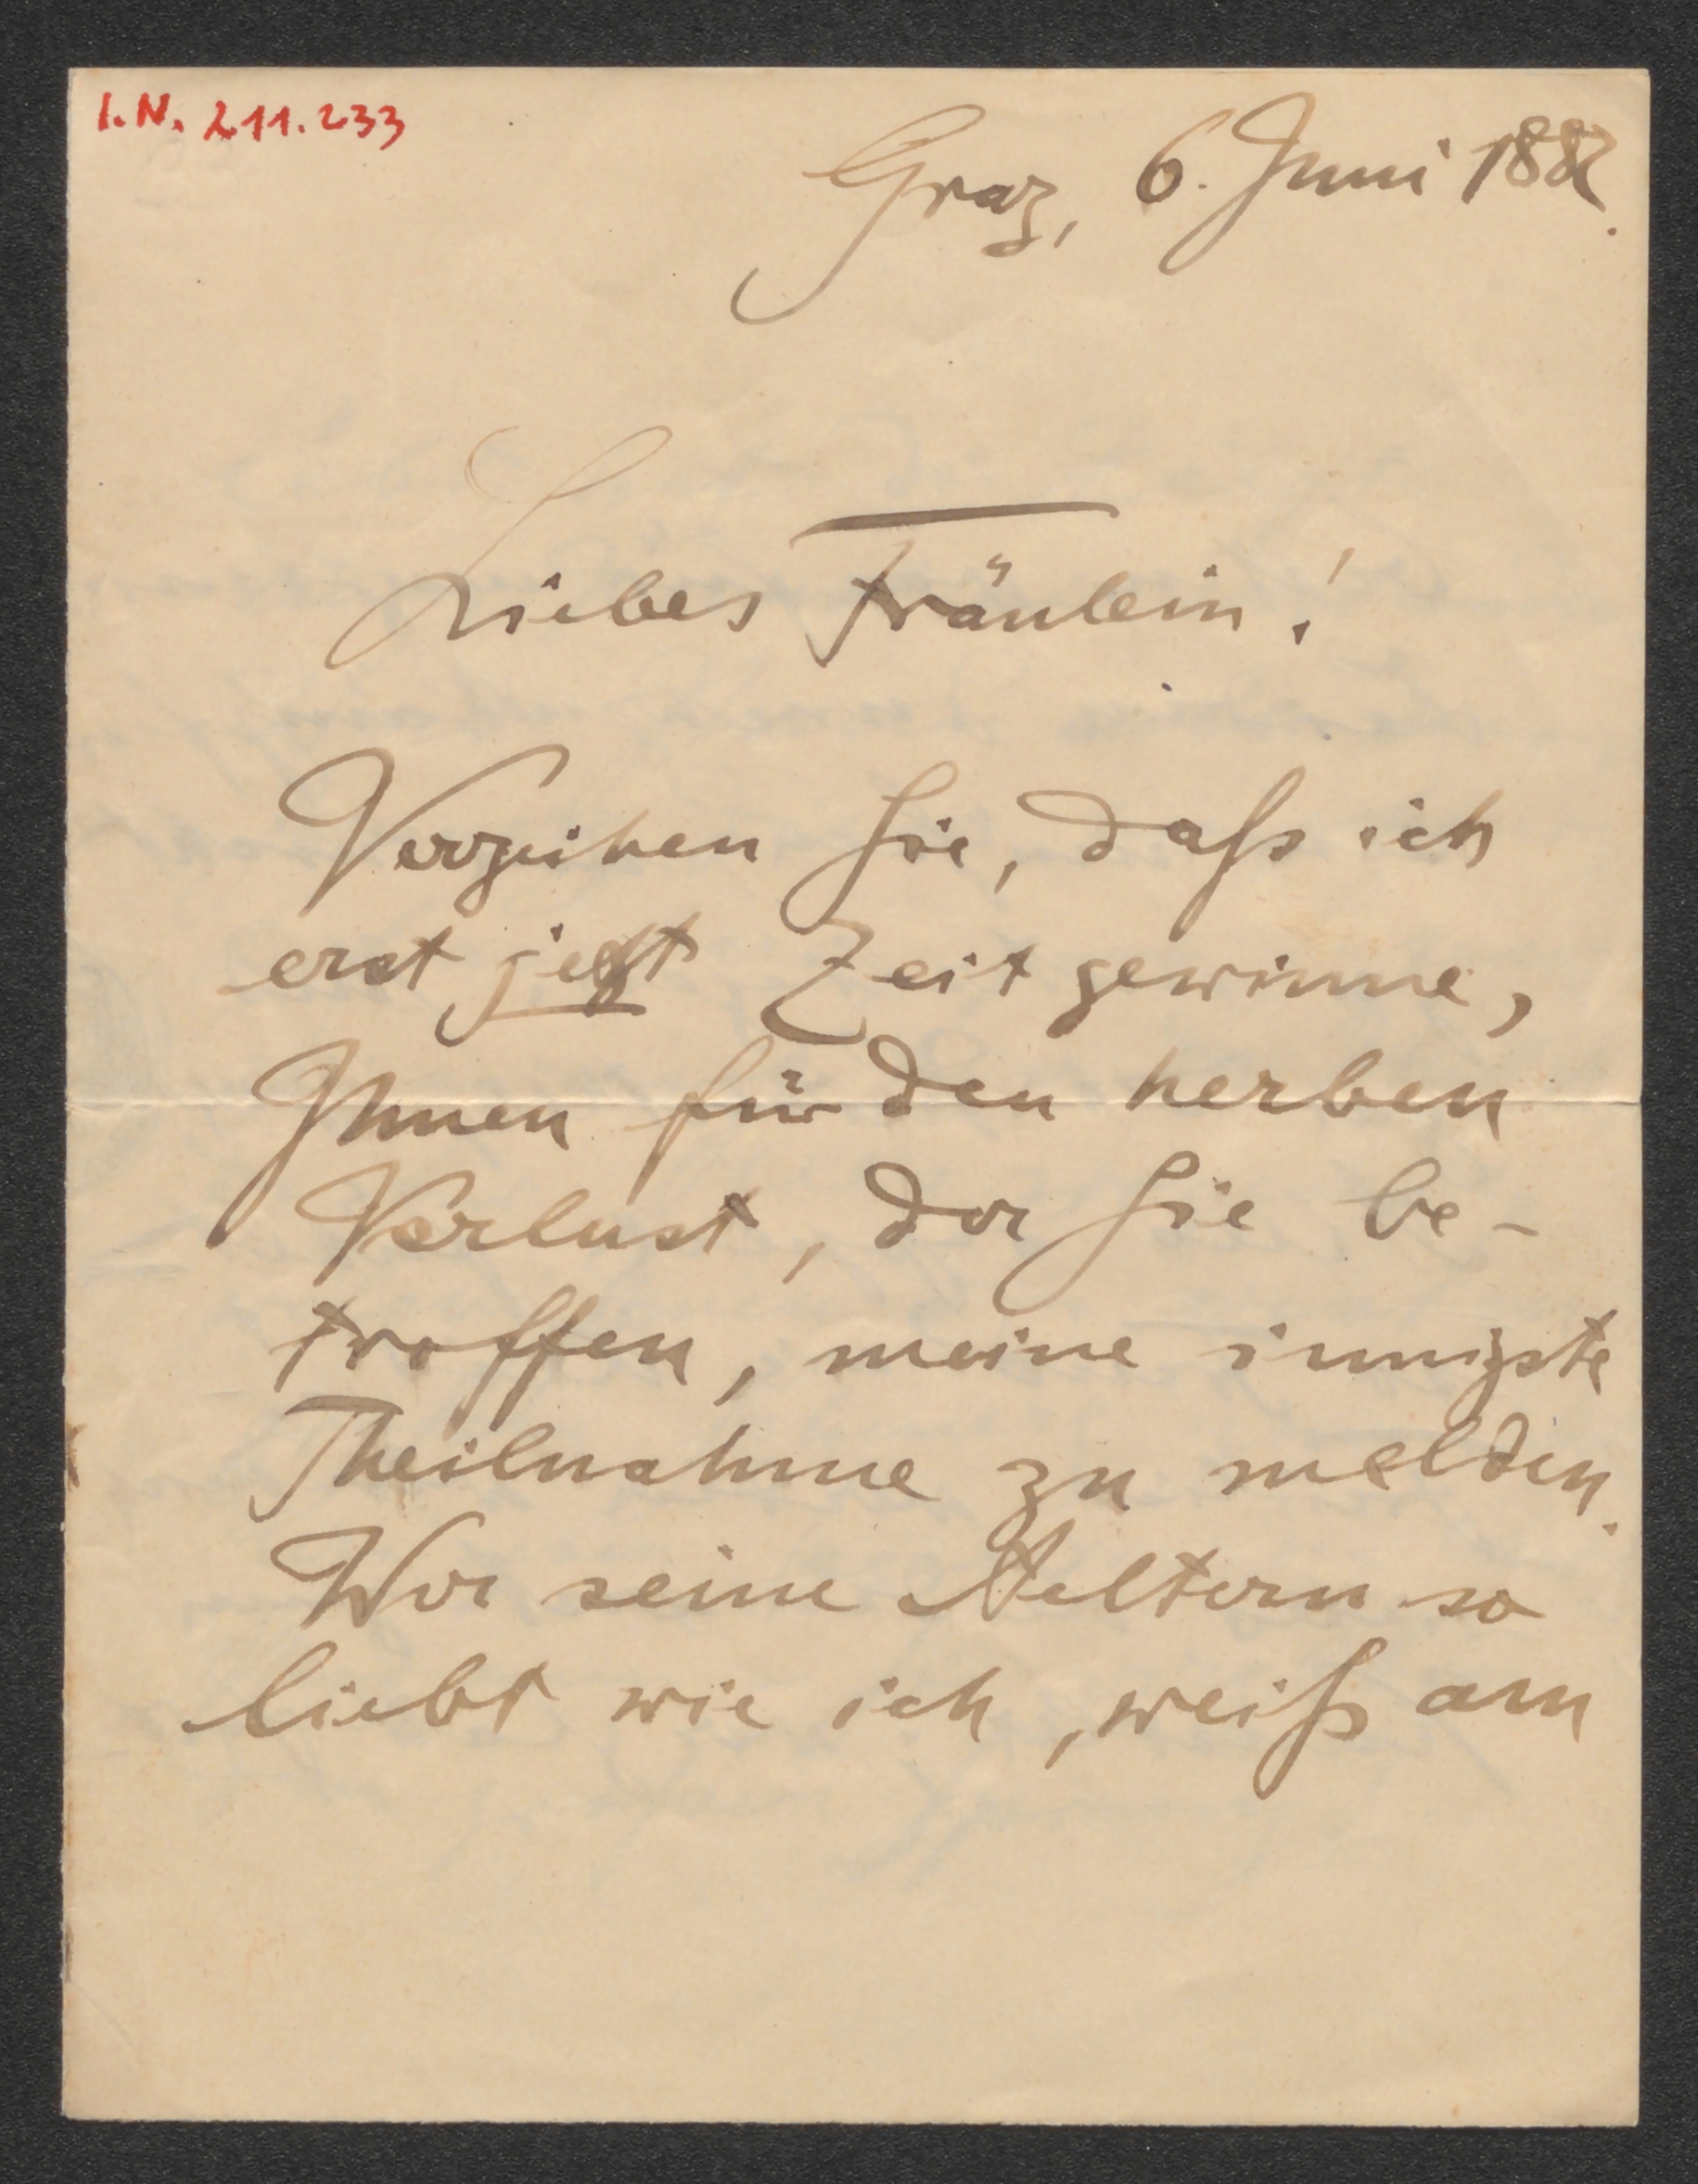 I.N. 211.233
Graz, 6. Juni 1882.
Liebes Fräulein!
Verzeihen Sie, daß ich
erst jetzt Zeit gewinne,
Ihnen für den herben
Verlust, der Sie be-
troffen, meine innigste
Theilnahme zu melden.
Wer seine Aeltern so
liebt wie ich, weiß am